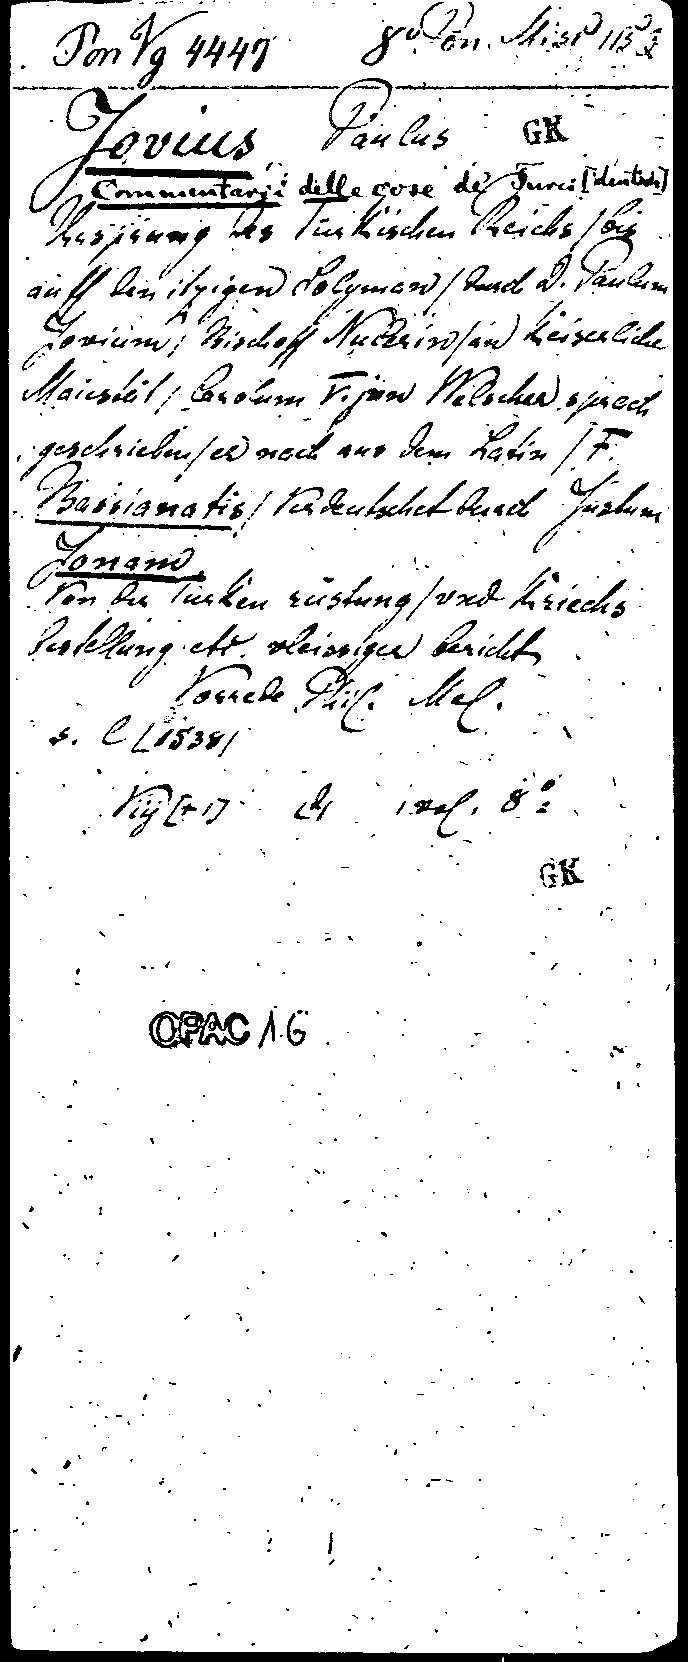 Pon Vg 4447 8° Pon. Misc
Jovius Paulus GK
Commentarii delle cose de Turci [deutsch]
Ursprung des Turkischen Reichs / bis
auff den itzigen Solyman / durch D. Paulum
Jovium / Bischoff Nucerin / an Keiserliche
Maiestat / Carolum V. jnn Welscher sprach
geschrieben / er nach aus dem Latin / F.
Bassianatis / verdeutschet durch Justum
Jonam
Von der Turken rüstung / vnd Kriechs
bestellung etc. vleissiger bericht
Vorrede Phil. Mel.
s. l [1538]
1 vol. 8°
GK
OPAC 16